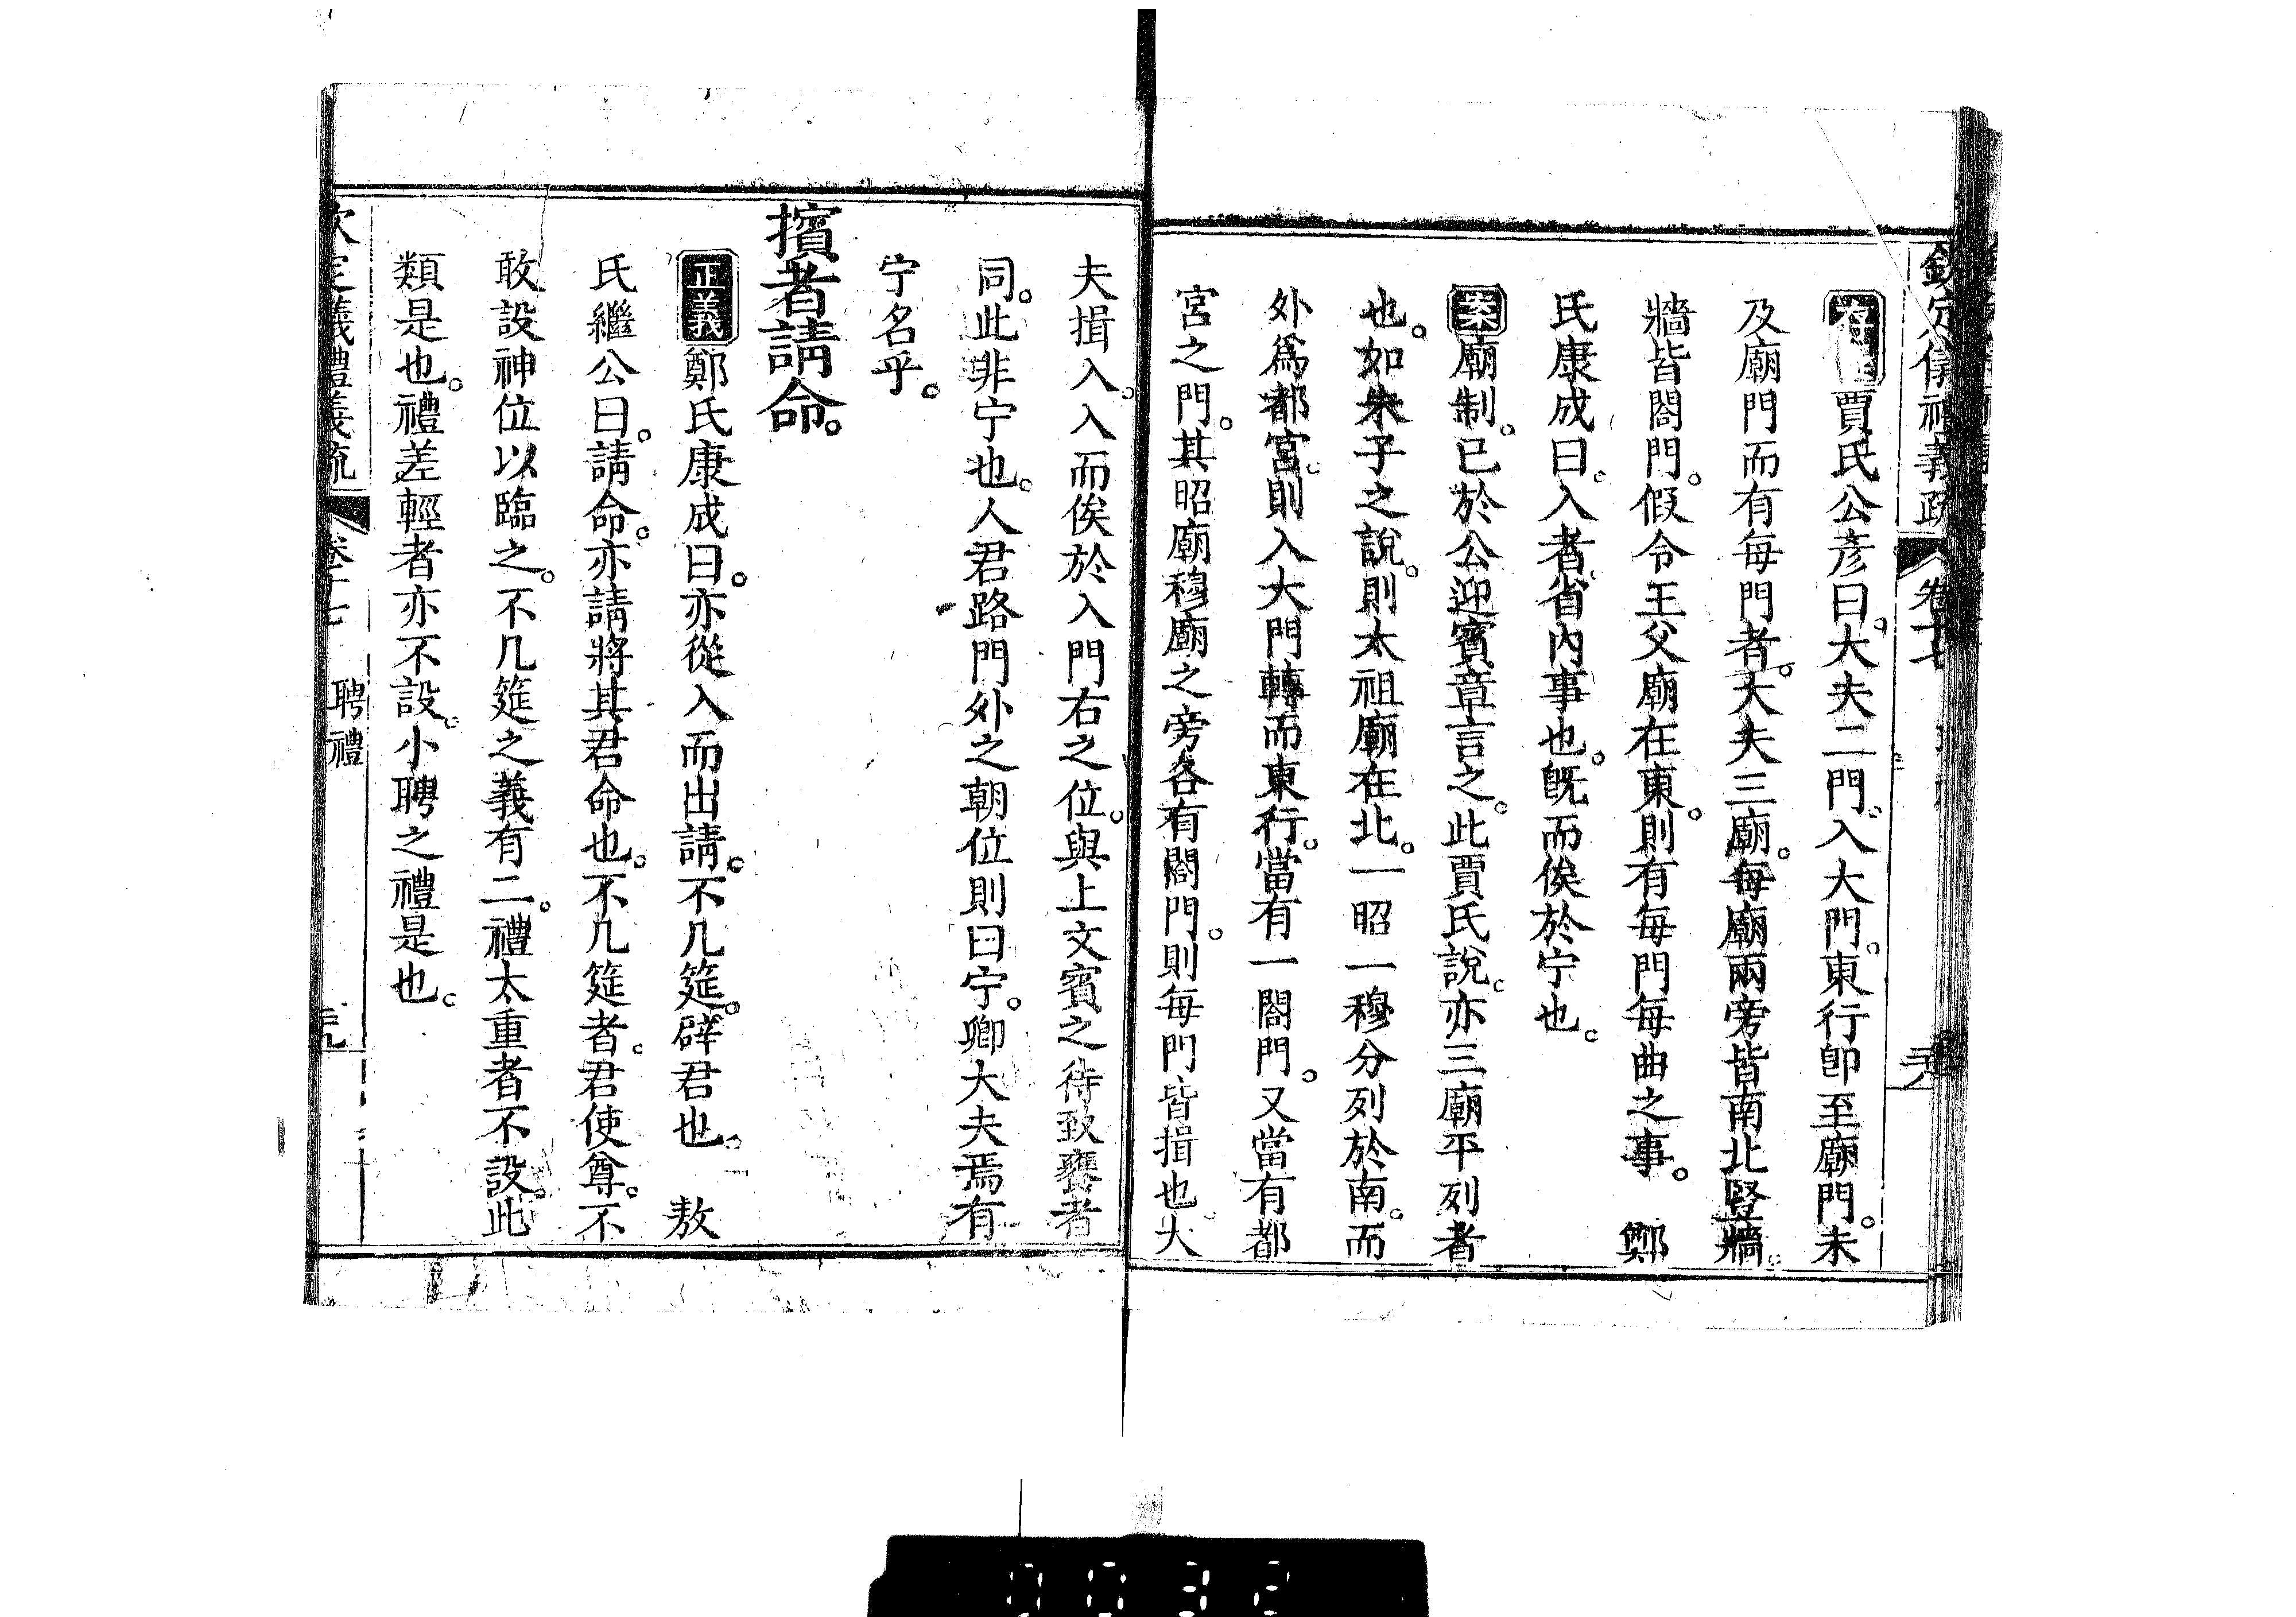 欽定儀禮義疏 卷十七
存疑賈氏公彥曰。大夫二門。入大門。東行即至廟門。未
及廟門而有每門者。大夫三廟。每廟兩旁皆南北豎牆。
牆皆閤門。假令王父廟在東。則有每門每曲之事。 鄭
氏康成曰。入者省內事也。既而俟於宁也。
案廟制。已於公迎賓章言之。此賈氏說。亦三廟平列者
也。如朱子之說。則太祖廟在北。一昭一穆分列於南。而
外爲都宮。則入大門轉而東行。當有一閤門。又當有都
宮之門。其昭廟穆廟之旁各有閤門。則每門皆揖也。大
夫揖入。入而俟於入門右之位。與上文賓之待致饔者
同。此非宁也。人君路門外之朝位則曰宁。卿大夫焉有
宁名乎。
擯者請命。
正義鄭氏康成曰。亦從入而出請。不几筵。辟君也。 敖
氏繼公曰。請命。亦請將其君命也。不几筵者。君使尊。不
敢設神位以臨之。不几筵之義有二。禮太重者不設。此
類是也。禮差輕者亦不設。小聘之禮是也。
欽定義禮義疏 卷十七 聘禮
0032